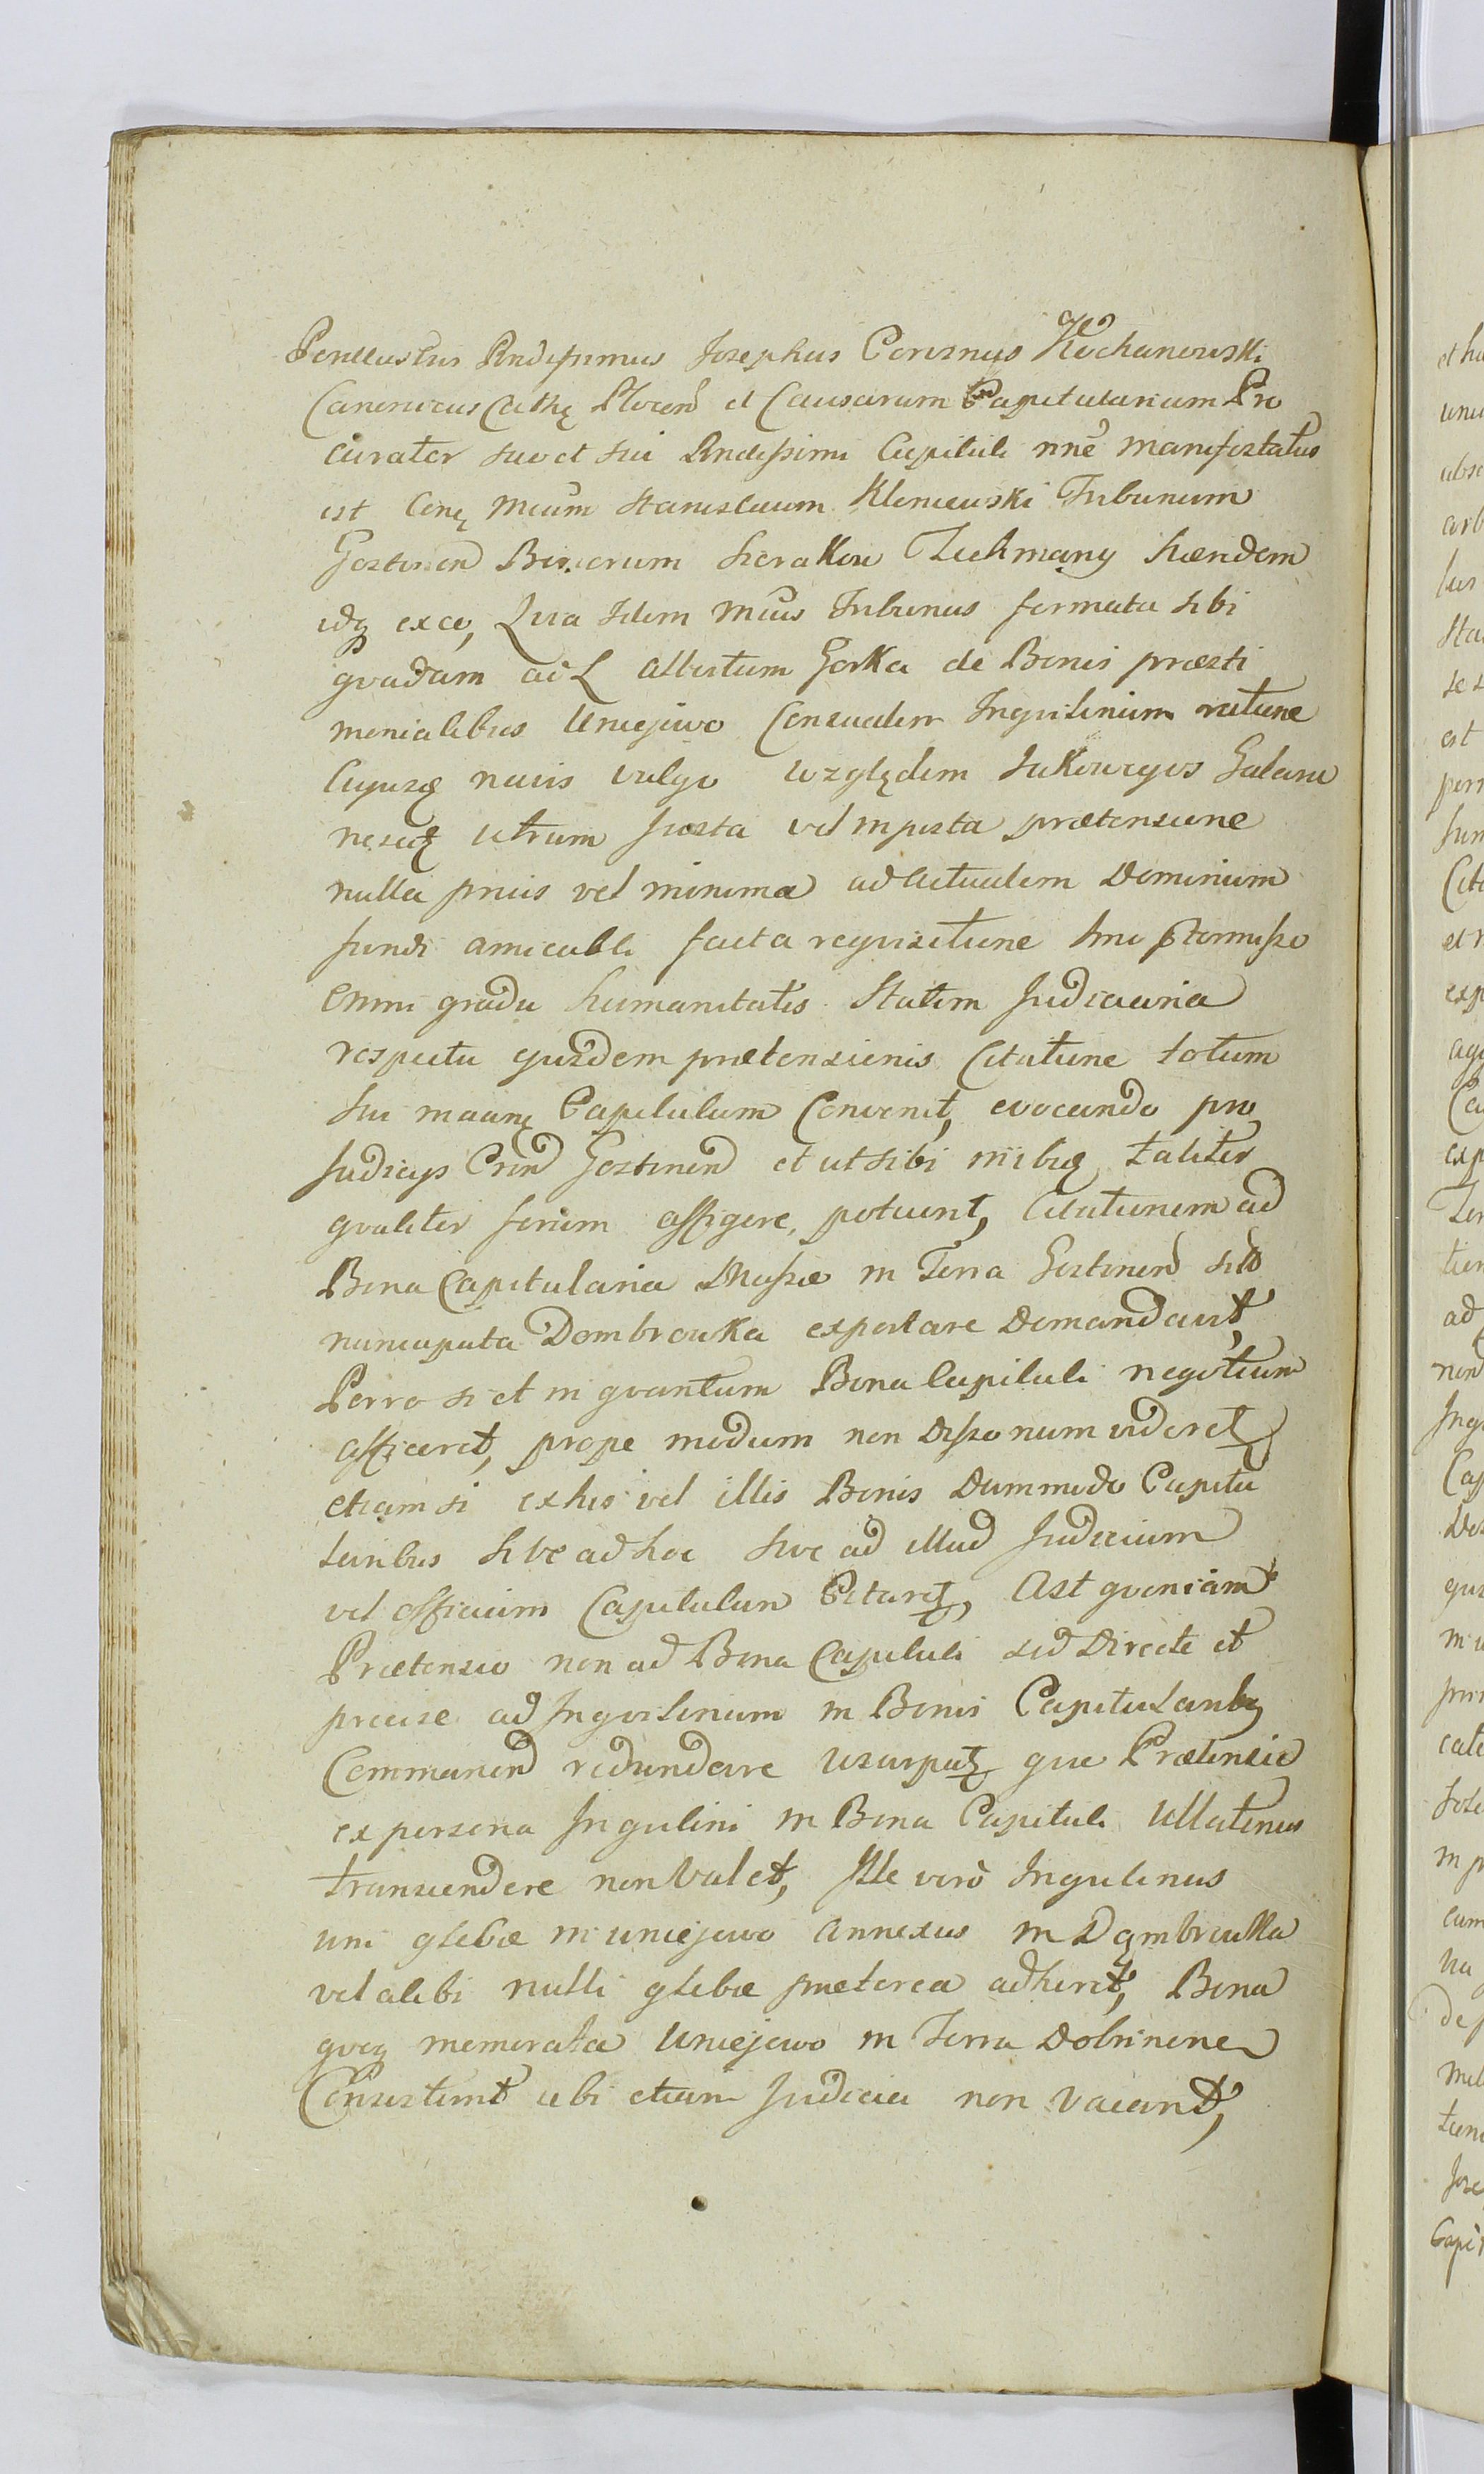 Perillustris Rndissimus Josephus Corvinus Kochanowski
Canonicus Cathę Plocen et Causarum Capitularium Pro
curator suo et sui Rndissimi Capituli nne manifestatus
est Conę Mcum Stanislaum Kleniewski Tribunum
Gostinen Bonorum Sierakow Hændem
idq exeo, Quia Idem Mcus Tribunus formata sibi
quadam ad L Albertum Gorka de Bonis præsti
monialibus Uniejewo Consualem Inquilinum ratione
Cujusq navis vulgo względem
nescitq utrum Justa vel injusta prætensione
nulla prius vel minima ad actualem Dominum
fundi amicabli facta requisitione Imo ptermisso
omni gradu humanitatis Statim Judiciaria
respectu ejusdem prætensionis Citatione totum
sui Capitulum Convenit, evocando pro
Judicys Gostinen et ut sibi taliter
qualiter forum affigere, potuerit, Citationem ad
Bona Capitularia in Terra Gostinen sita
nuncupata Dombrowka exportare Demandavit,
Porro si et in quantum Bona Capituli negotium
afficeret, prope modum non Dissonum videret
etiam si ex his vel illis Bonis Dummodo Capitu
laribus Sive ad hoc sive ad illud Judicium
vel officium Capitulum Citaret, Ast quoniam
Prætensio non ad Bona Capituli sed Directe et
præcise ad Inquilinum in Bonis Capitularibq
Commoran redundare usurpat que Prætensio
ex persona Inquilini in Bona Capituli Ullatenus
transcendere non Valet, Ille verò Inquilinus
uni glebæ in Uniejewo annexus in Dąmbrowka
vel alibi nulli glebæ præterea adheret, Bona
quoq memorata Uniejewo in Terra Dobrinenen
Consistunt ubi etiam Judicia non vacant,
et ha
Sta
se s
est
Cita
et n
exp
Ca
exp
Ter
tion
ad
non
Inq
Cap
cum
na
de p
Capit